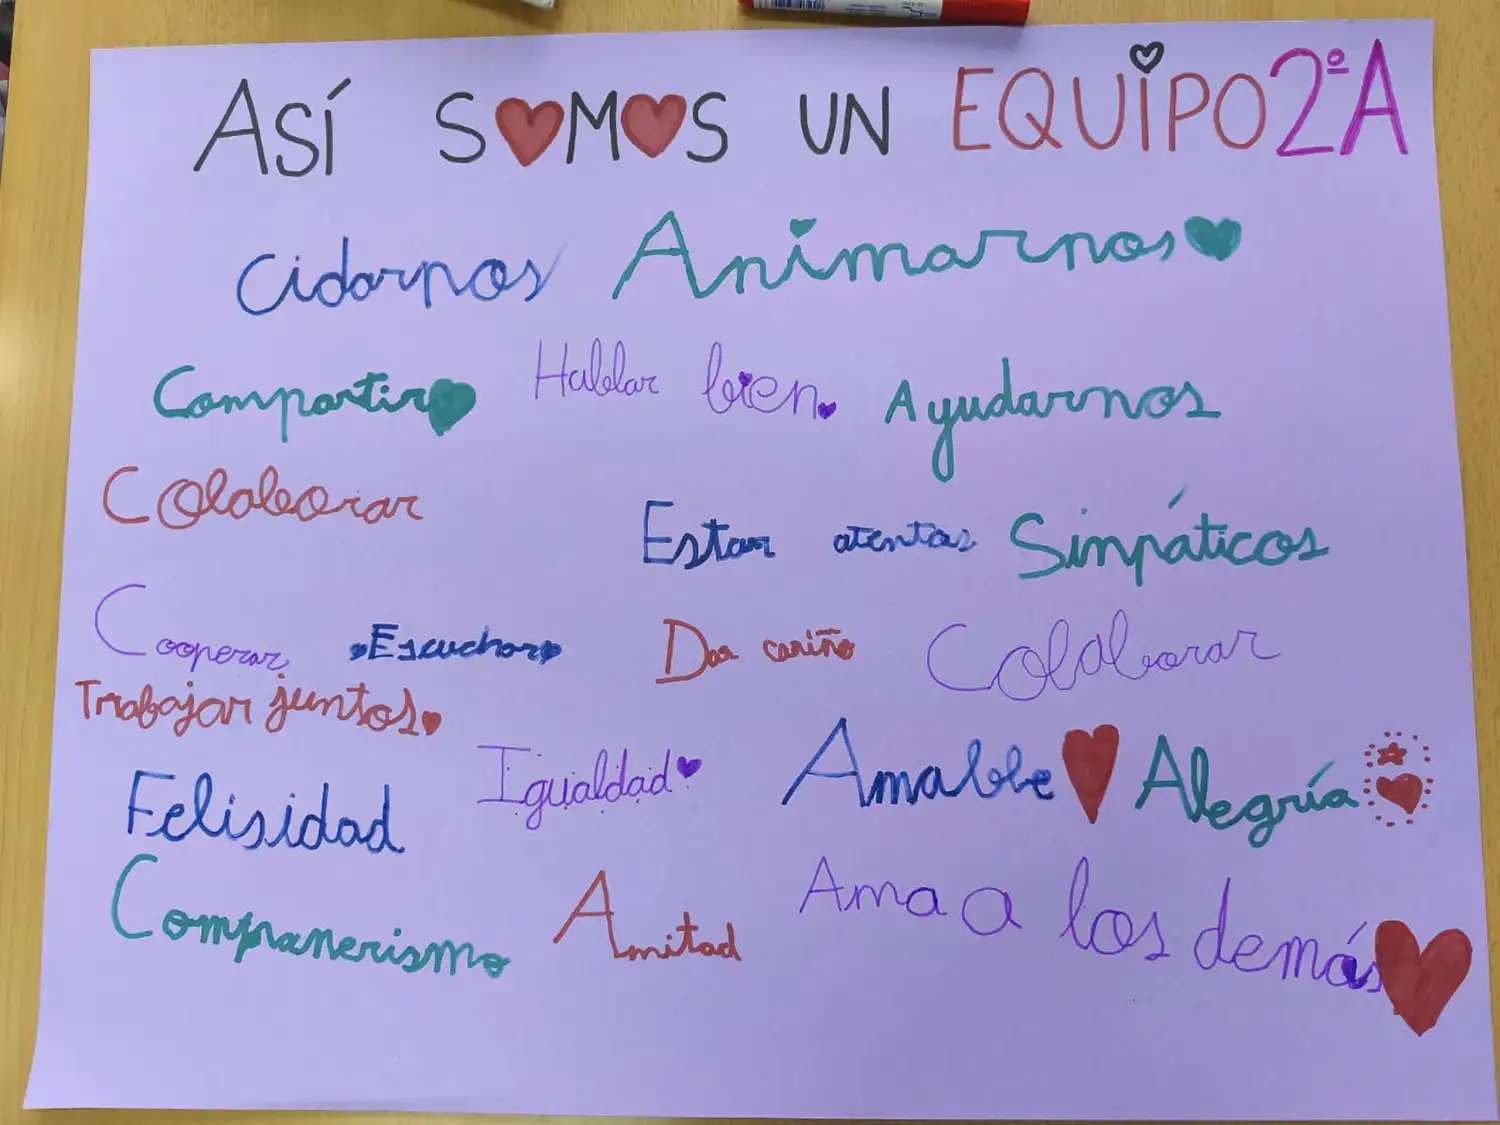 ASÍ SOMOS UN EQUIPO 2ºA
Cidarnos Animarnos
Compartir Hablar bien Ayudarnos
Colaborar Estar atentos Simpáticos
Cooperar Escuchar Dar cariño Colaborar
Trabajar juntos
Felisidad Igualdad Amable Alegría
Companerismo Amitad Ama a los demás